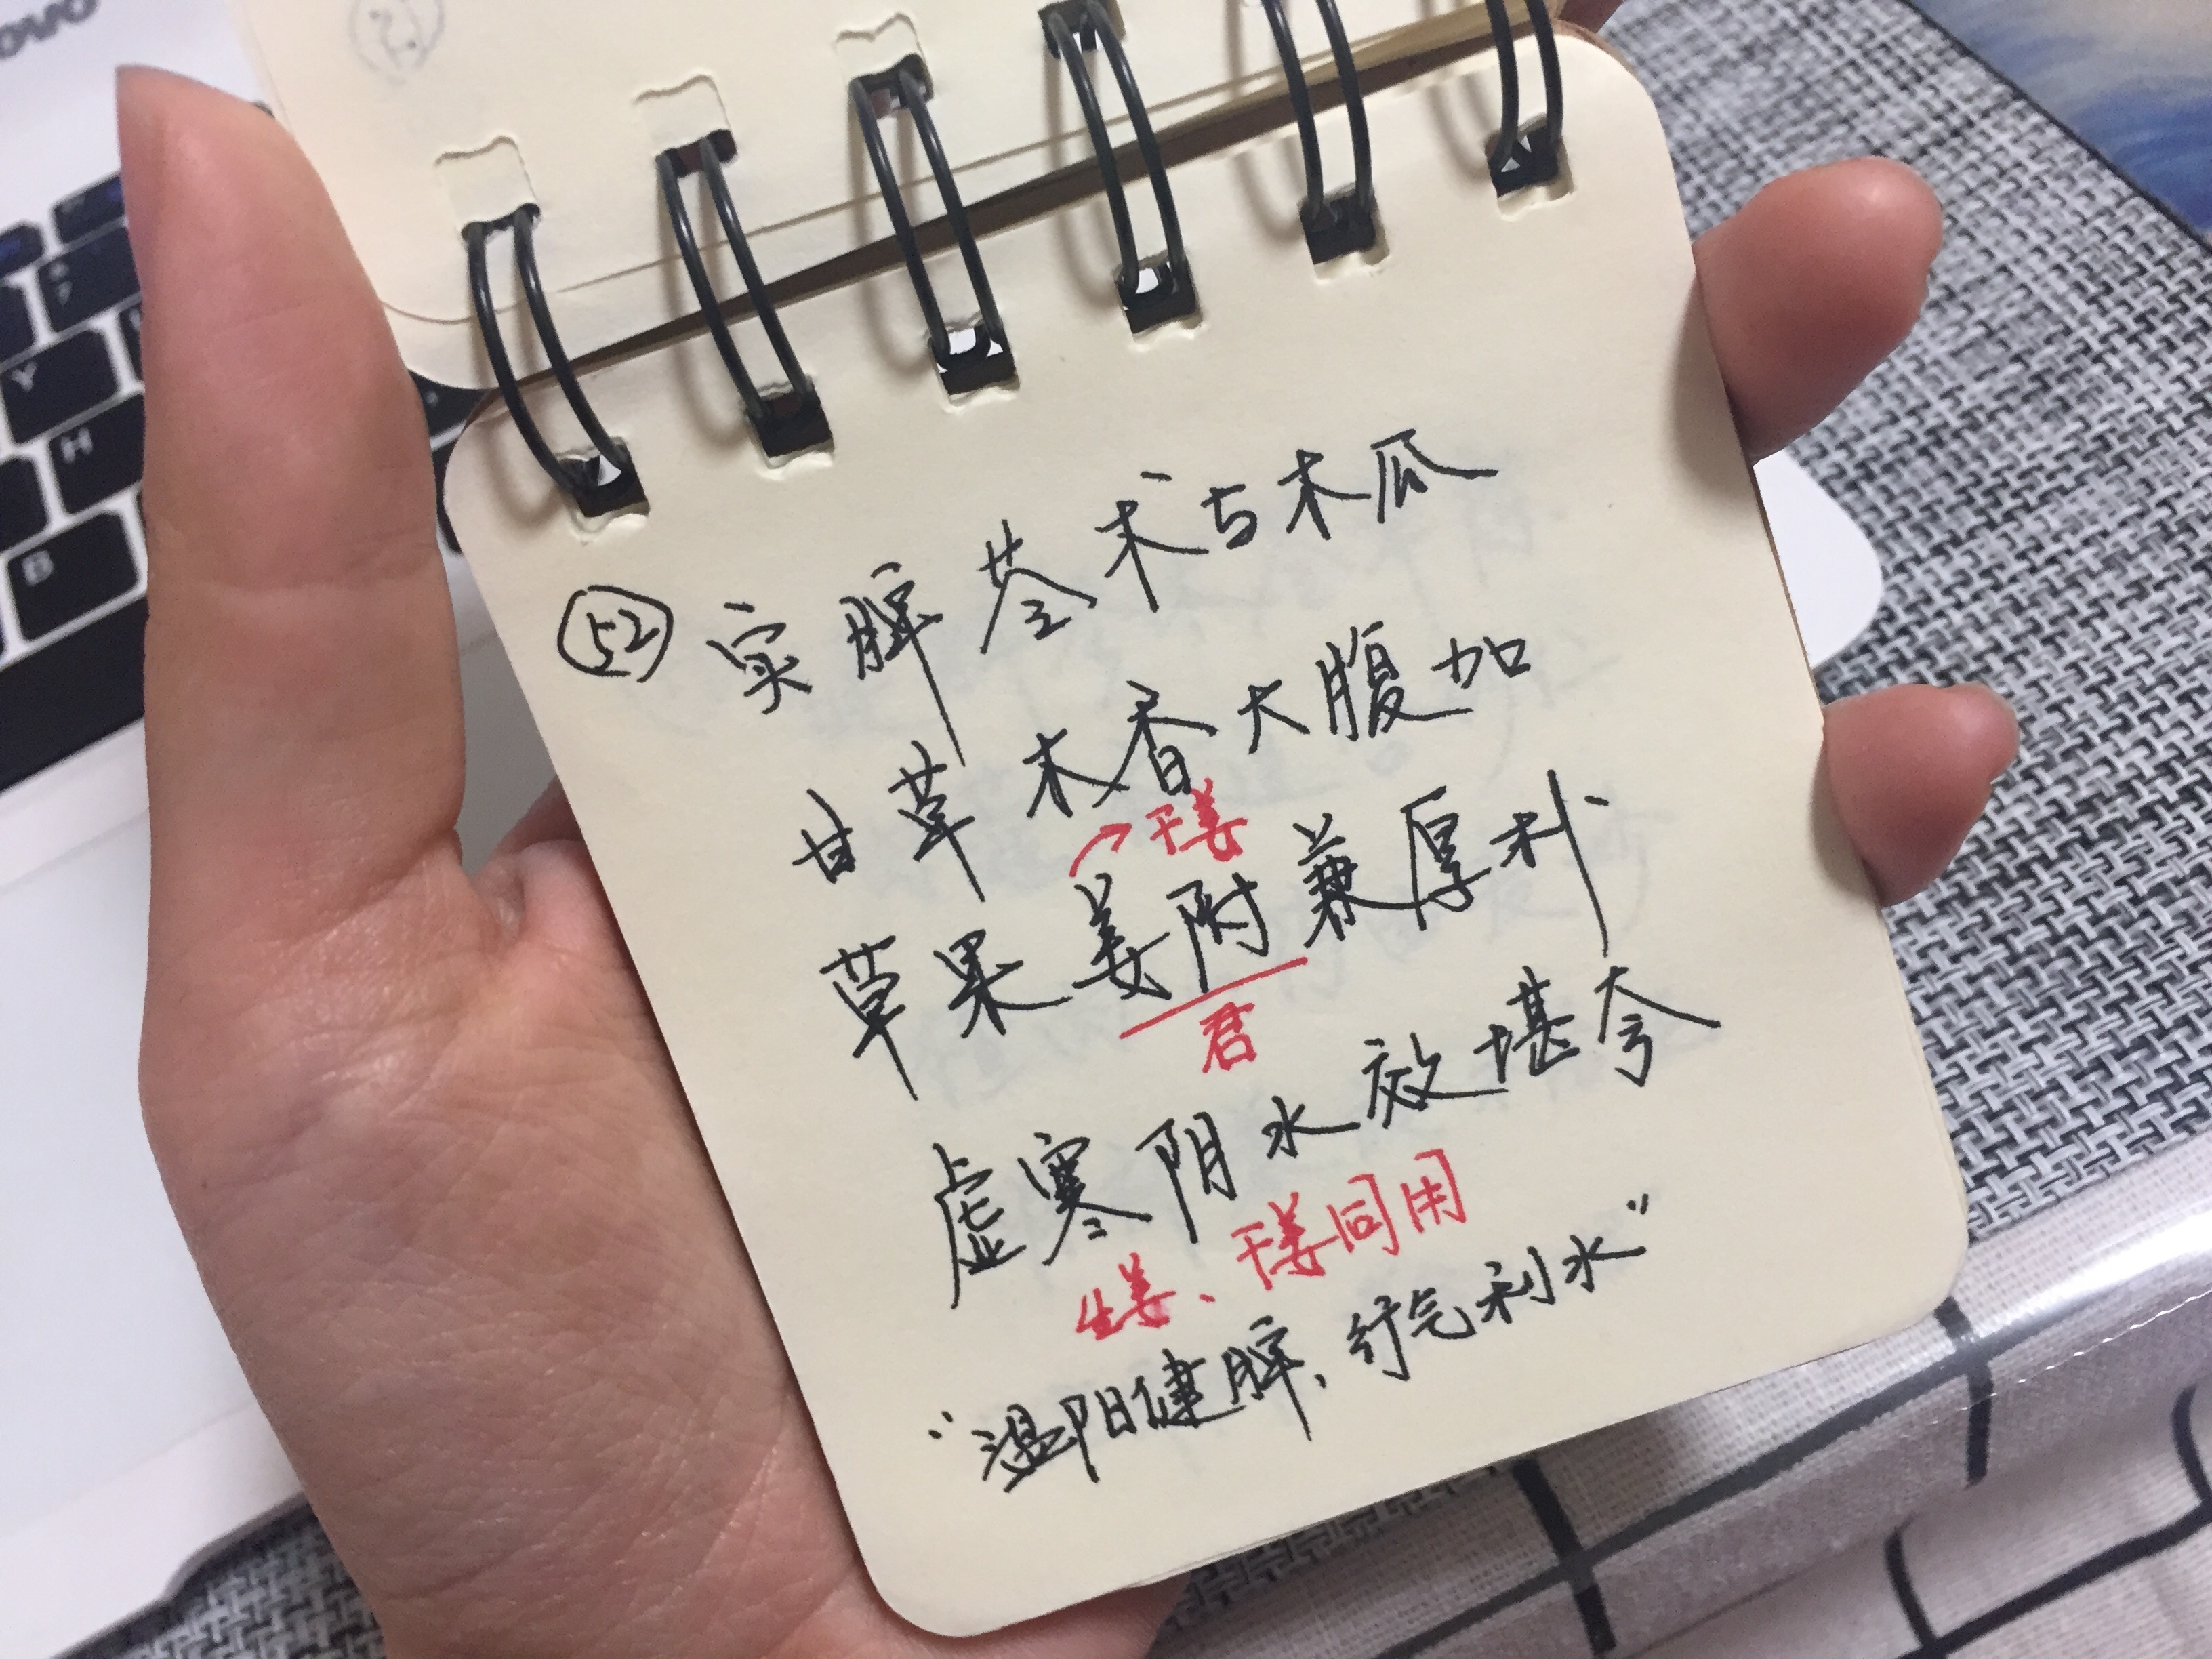 52 实脾苓术与木瓜
甘草木香大腹加
→干姜
草果姜附兼厚朴
君
虚寒阴水效堪夸
生姜、干姜同用
“温阳健脾、行气利水”
Y
H
B